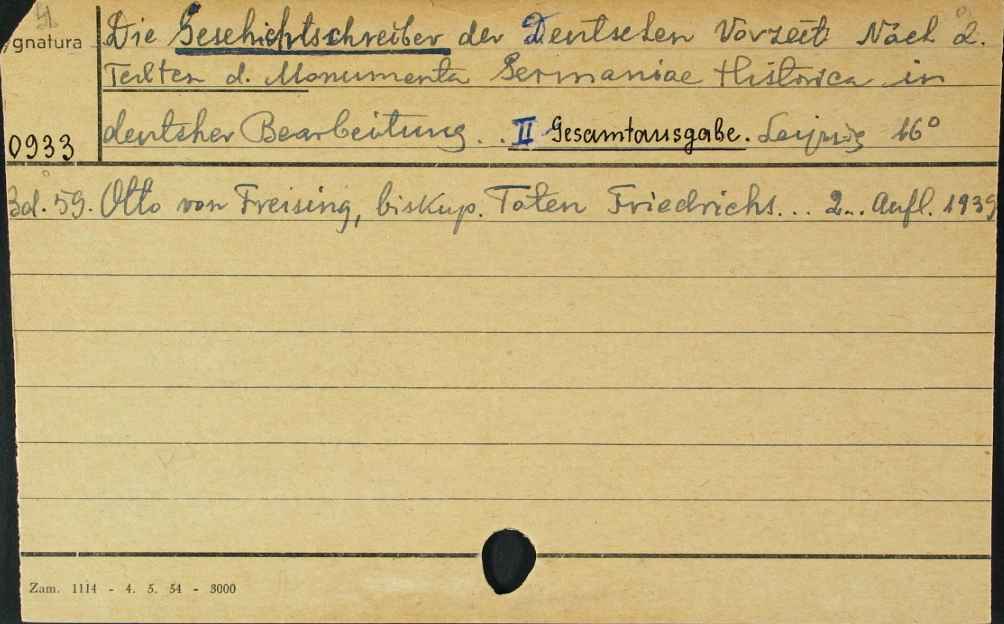 ygnatura
Die Geschichtschreiber der Deutschen Vorzeit Nach d.
Texten d. Monumenta Germaniae Historica in
deutcher Bearbeitung . . II Gesamtausgabe. Leipzig 16°
0933
Bd. 59. Otto von Freising, biskup. Taten Friedrichs... 2.. Aufl. 1939
Zam. 1114 - 4. 5. 54 - 3000